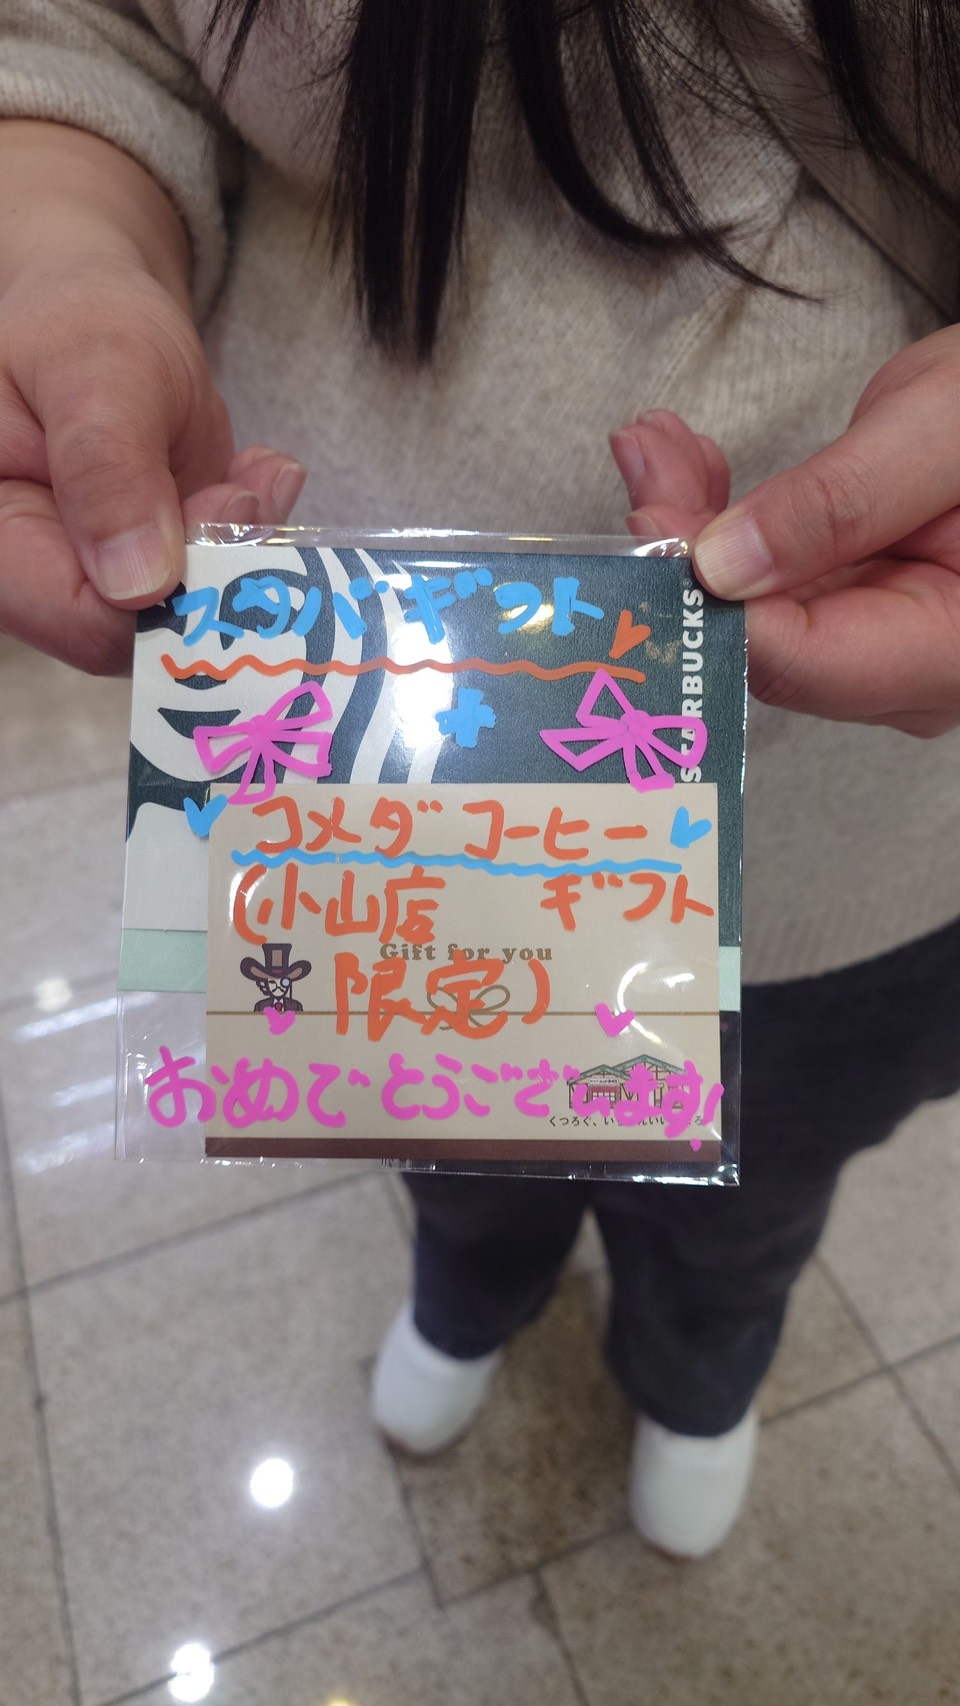 スタバギフト
STARBUCKS®
+
コメダコーヒー
(小山店 ギフト
Gift for you
限定)
おめでとうございます!
くつろぐ、い